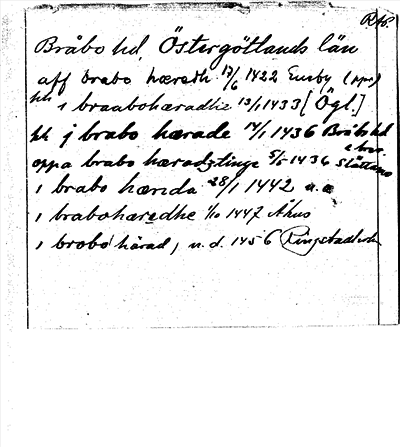 Bråbo hd, Östergötlands län
aff brabo hæradh 17/6 1422
hh i braabohæradhe 13/1 1433 [Ögl.]
hh j brabo hærade 14/1 1436 Bråbo hd
oppa brabo hæradztinge 5/5 1436
i brabo hærida 28/1 1442
i brabohæredhe 1/10 1447 Åhus
i brobo härad, u.d. 1456 Ringstadholm